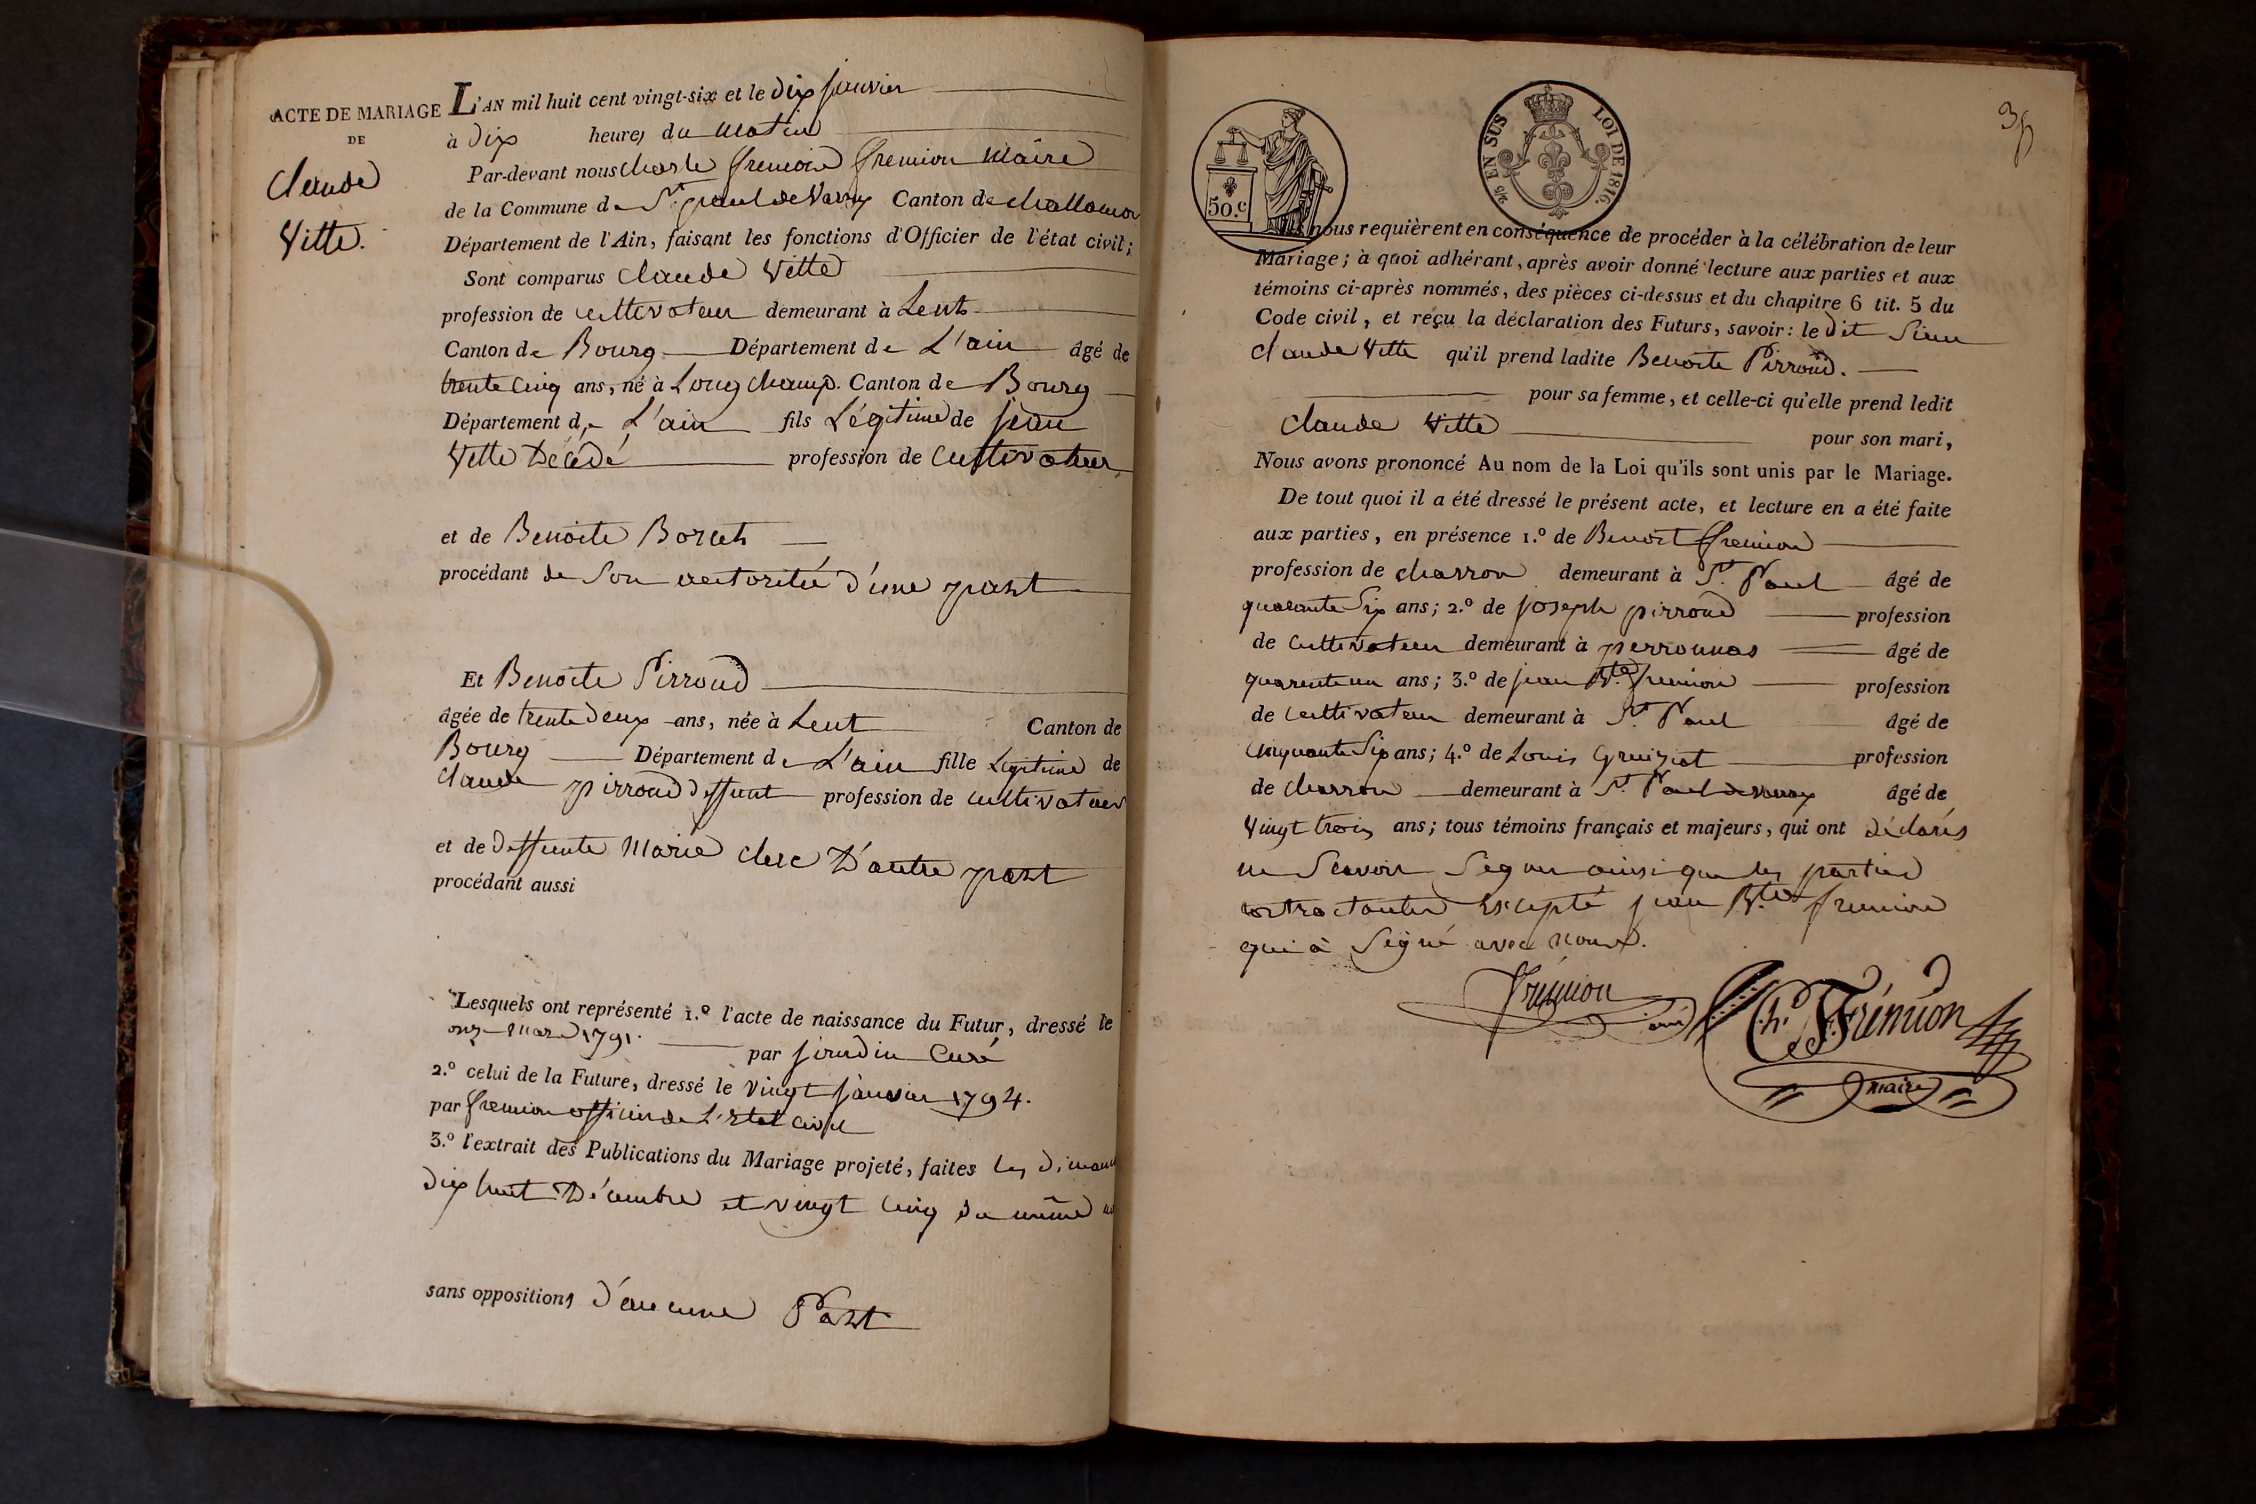 ACTE DE MARIAGE
DE
Claude
Vitte.
L'AN mil huit cent vingt-six et le dix janvier
à dix heures du matin
Par-devant nous Charle fremion Maire
de la Commune de St. paul de Varax Canton de challamon
Département de l'Ain, faisant les fonctions d'Officier de l'état civil;
Sont comparus Claude Vitte
profession de cultivateur demeurant à Lent
Canton de Bourg Département de L'ain âgé de
trente cinq ans, né à Long champ. Canton de Bourg
Département de L'ain fils Légitime de jean
Vitte Décédé profession de Cultivateur
et de Benoite
procédant de Son autorité d'une part
Et Benoite Pirroud
âgée de trente deux ans, née à Lent Canton de
Bourg Département de L'ain fille Legitime de
Claude pirroud deffunt profession de cultivateur
et de deffunte Marie clerc D'autre part
procédant aussi
Lesquels ont représenté 1.º l'acte de naissance du Futur, dressé le
onze Mars 1791. par Curé
2.º celui de la Future, dressé le vingt janvier 1794.
par fremion officier de L'Etat civil
3.º l'extrait des Publications du Mariage projeté, faites les
dix huit Décembre et vingt cinq du même
sans oppositions d'aucune Part
50.c
2/5 EN SUS LOI DE 1816.
nous requièrent en conséquence de procéder à la célébration de leur
Mariage; à quoi adhérant, après avoir donné lecture aux parties et aux
témoins ci-après nommés, des pièces ci-dessus et du chapitre 6 tit. 5 du
Code civil, et reçu la déclaration des Futurs, savoir: le dit Sieur
Claude Vitte qu'il prend ladite Benoite Pirroud.
pour sa femme, et celle-ci qu'elle prend ledit
Claude Vitte pour son mari,
Nous avons prononcé Au nom de la Loi qu'ils sont unis par le Mariage.
De tout quoi il a été dressé le présent acte, et lecture en a été faite
aux parties, en présence 1.º de Benoit fremion
profession de charron demeurant à St. Paul âgé de
quarante Six ans; 2.º de joseph pirroud profession
de Cultivateur demeurant à perronnas âgé de
quarente un ans; 3.º de jean Bte. fremion profession
de Cultivateur demeurant à St. Paul âgé de
cinquante Six ans; 4.º de Louis Gruiziat profession
de charron demeurant à St. Paul de varax âgé de
Vingt trois ans; tous témoins français et majeurs, qui ont déclarés
ne Scavoir Signer ainsi que les parties
contractantes Excepté jean Bte. fremion
qui à Signé avec nous.
frémion
Ch. Frémion
maire